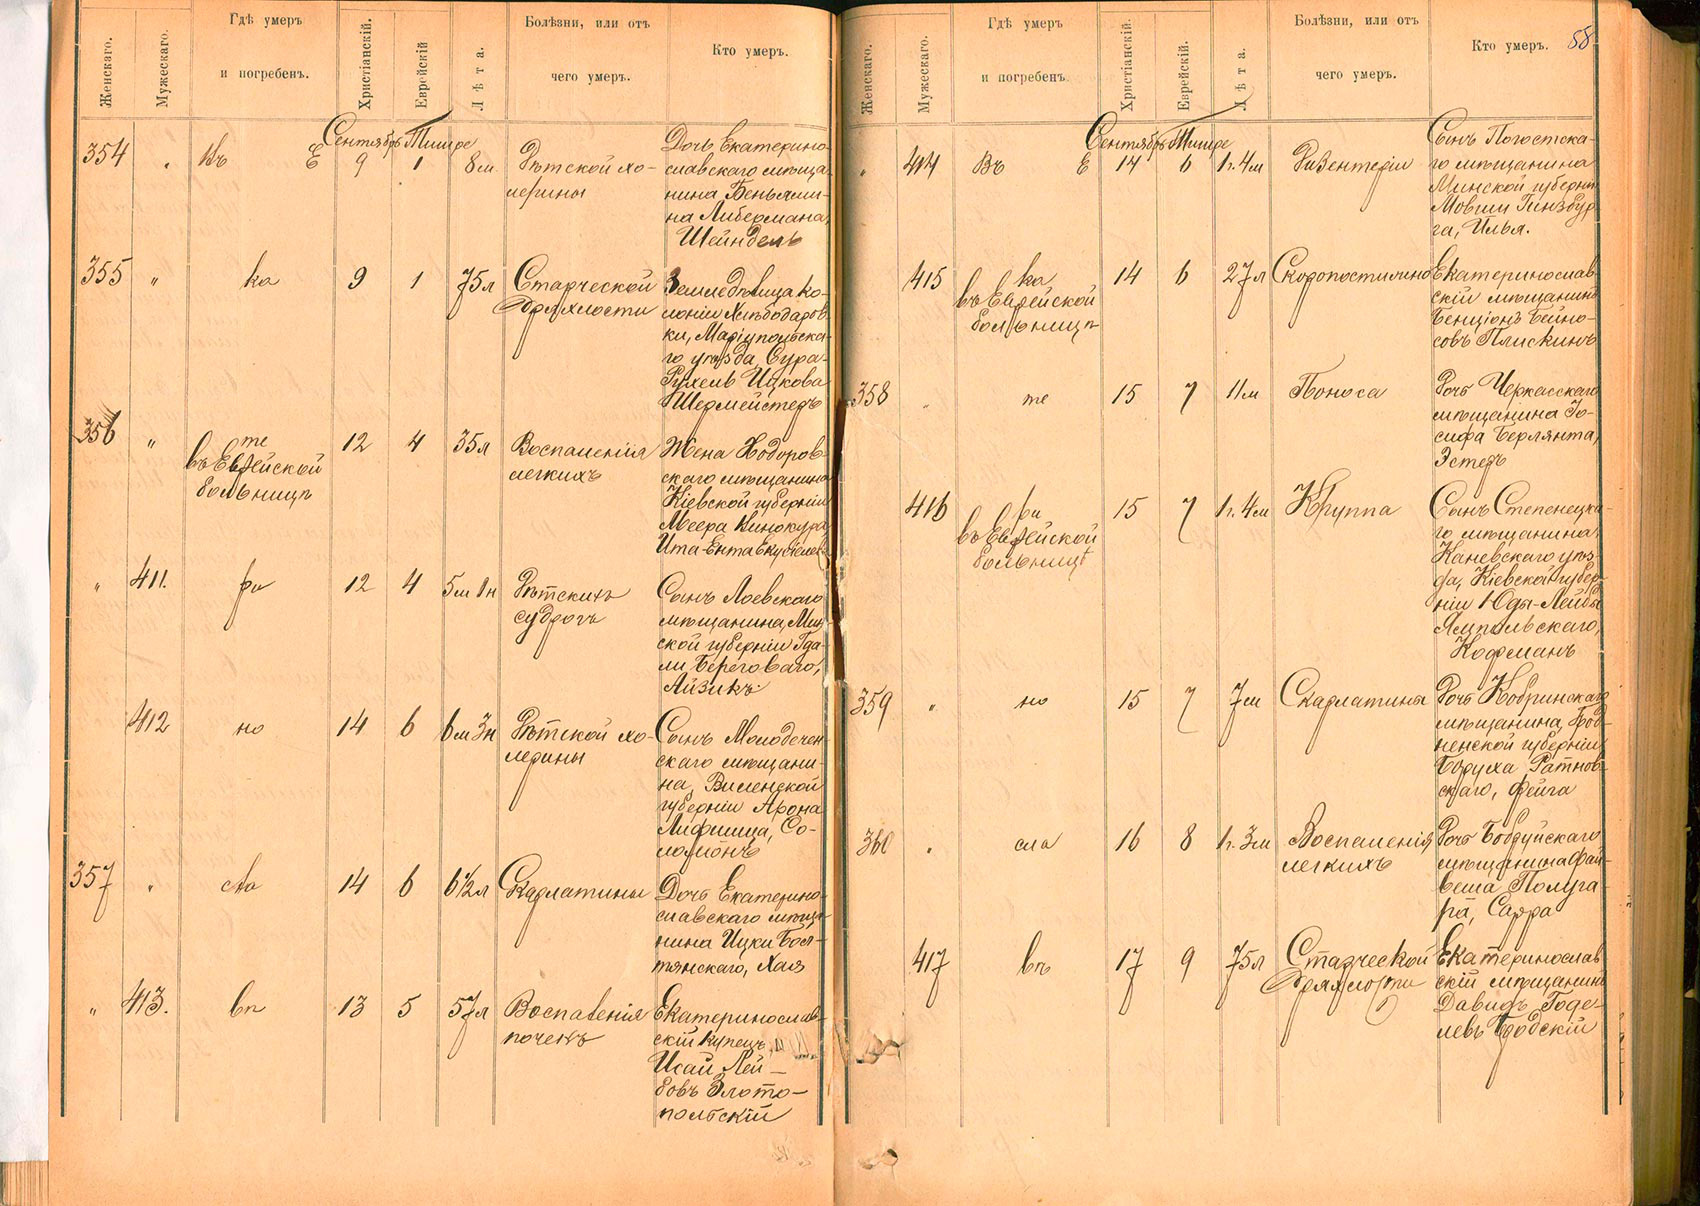 Женскаго.
Мужескаго.
Гдѣ умеръ
и погребенъ.
Христіанскій.
Еврейскій
Лѣта.
Болѣзни, или отъ
чего умеръ.
Кто умеръ.
Сентябрь Тишре
354 „ Въ Е 9 1 8м
Дѣтской хо-
лерины
Дочь Екатерино-
славскаго мѣща-
нина Беньями-
на Либермана,
Шейндель
355 „ ка 9 1 75л
Старческой
дряхлости
Земледѣлица ко-
лоніи Хлѣбодаров-
ки, Маріупольска-
го уѣзда, Сура-
Рухель Ицкова
Шермейстеръ
356 „ те 12 4 35л
въ Еврейской
больницѣ
Воспаленія
легкихъ
Жена Ходоров-
скаго мѣщанина
Кіевской губерніи
Меера Винокура
Ита-Ента
„ 411. ри 12 4 5м 1н
Дѣтскихъ
судрогъ
Сынъ Лоевскаго
мѣщанина, Мин-
ской губерніи Гда-
ли Береговаго,
Айзикъ.
412 но 14 6 6м 3н
Дѣтской хо-
лерины
Сынъ Молодечен-
скаго мѣщани-
на, Виленской
губерніи Арона
Лифшица, Со-
ломонъ
357 „ сла 14 6 6½л
Скарлатины
Дочь Екатерино-
славскаго мѣща-
нина Ицки Бол-
тянскаго, Хая
„ 413. вѣ 13 5 57л
Воспаленія
почекъ
Екатеринослав-
скій купецъ,
Исай Лей-
бовъ Злото-
польскій
Женскаго.
Мужескаго.
Гдѣ умеръ
и погребенъ.
Христіанскій.
Еврейскій.
Лѣта.
Болѣзни, или отъ
чего умеръ.
Кто умеръ.
58
Сентябрь Тишре
„ 414 Въ Е 14 6 1г. 4м
Дизентеріи
Сынъ Погостска-
го мѣщанина
Минской губерніи
Мовши Гинзбур-
га, Илья.
415 ка 14 6 27л
въ Еврейской
больницѣ
Скоропостижно
Екатеринослав-
скій мѣщанинъ
Бенціонъ Бейно-
совъ Плискинъ
358 „ те 15 7 11м
Поноса
Дочь Черкасскаго
мѣщанина Іо-
сифа Берлянта,
Эстеръ
416 ри 15 7 1г. 4м
въ Еврейской
больницѣ
Круппа
Сынъ Степенецка-
го мѣщанина,
Каневскаго уѣз-
да, Кіевской губер-
ніи Юды-Лейбы
Ямпольскаго,
Кофманъ
359 „ но 15 7 7м
Скарлатины
Дочь Кобринскаго
мѣщанина, Грод-
ненской губерніи,
Боруха Ратнов-
скаго, Фейга
360 „ сла 16 8 1г. 3м
Воспаленія
легкихъ
Дочь Бобруйскаго
мѣщанина Фай-
веша Полуга-
ра, Сарра
417 вѣ 17 9 75л
Старческой
дряхлости
Екатеринослав
скій мѣщанинъ
Давидъ Годе-
левъ Бродскій